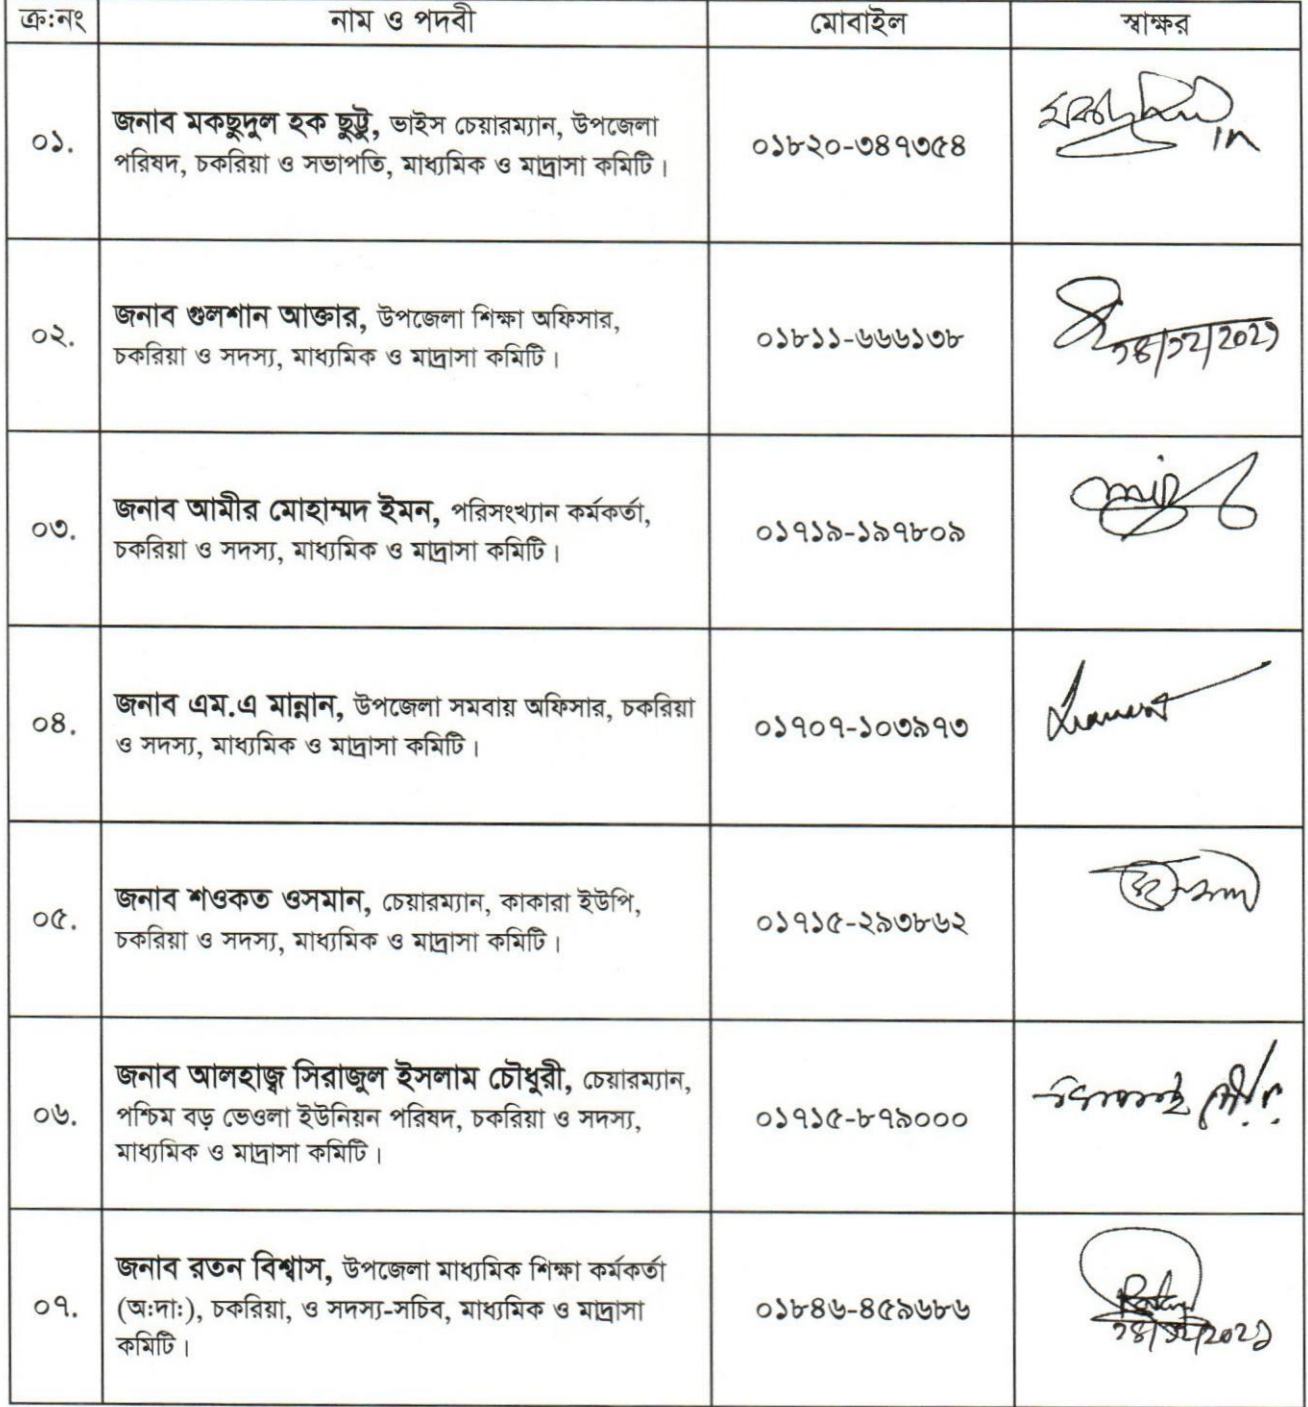 ক্র:নং নাম ও পদবী মোবাইল স্বাক্ষর
০১. জনাব মকছুদুল হক ছুট্টু, ভাইস চেয়ারম্যান, উপজেলা
পরিষদ, চকরিয়া ও সভাপতি, মাধ্যমিক ও মাদ্রাসা কমিটি।
০১৮২০-৩৪৭৩৫৪
০২. জনাব গুলশান আক্তার, উপজেলা শিক্ষা অফিসার,
চকরিয়া ও সদস্য, মাধ্যমিক ও মাদ্রাসা কমিটি।
০১৮১১-৬৬৬১৩৮
১৪/১২/২০২১
০৩. জনাব আমীর মোহাম্মদ ইমন, পরিসংখ্যান কর্মকর্তা,
চকরিয়া ও সদস্য, মাধ্যমিক ও মাদ্রাসা কমিটি।
০১৭১৯-১৯৭৮০৯
০৪. জনাব এম.এ মান্নান, উপজেলা সমবায় অফিসার, চকরিয়া
ও সদস্য, মাধ্যমিক ও মাদ্রাসা কমিটি।
০১৭০৭-১০৩৯৭৩
০৫. জনাব শওকত ওসমান, চেয়ারম্যান, কাকারা ইউপি,
চকরিয়া ও সদস্য, মাধ্যমিক ও মাদ্রাসা কমিটি।
০১৭১৫-২৯৩৮৬২
০৬. জনাব আলহাজ্ব সিরাজুল ইসলাম চৌধুরী, চেয়ারম্যান,
পশ্চিম বড় ভেওলা ইউনিয়ন পরিষদ, চকরিয়া ও সদস্য,
মাধ্যমিক ও মাদ্রাসা কমিটি।
০১৭১৫-৮৭৯০০০
০৭. জনাব রতন বিশ্বাস, উপজেলা মাধ্যমিক শিক্ষা কর্মকর্তা
(অ:দা:), চকরিয়া, ও সদস্য-সচিব, মাধ্যমিক ও মাদ্রাসা
কমিটি।
০১৮৪৬-৪৫৯৬৮৬
১৪/১২/২০২১